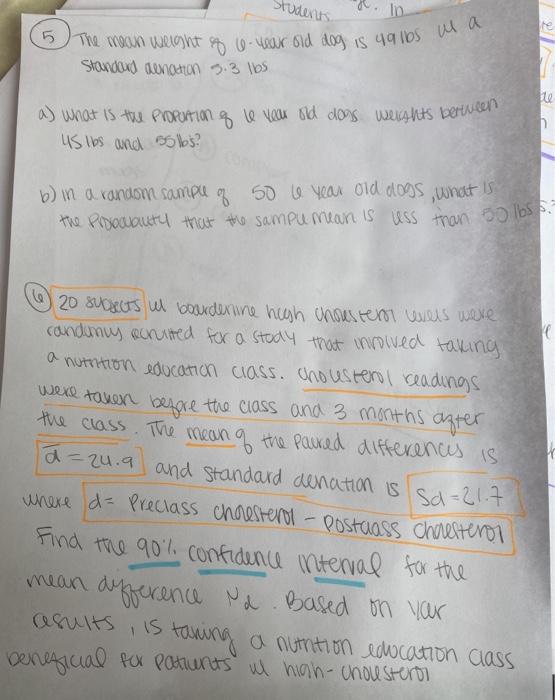 Students In
5 The mean weight of 6-year old dog is 49 lbs w a
Standard deviation 3.3 lbs
a) what is the proportion of 6 year old dogs weights between
45 lbs and 55 lbs?
b) in a random sample of 50 6 year old dogs, what is
the Probability that the sample mean is less than 50 lbs
6 20 subjects w boarderline high cholesterol levels were
randomly recruited for a study that involved taking
a nutrition education class. cholesterol readings
were taken before the class and 3 months after
the class. The mean of the paired differences is
d̄ = 24.9 and standard deviation is Sd = 21.7
where d = Preclass cholesterol - Postclass cholesterol
Find the 90% confidence interval for the
mean difference Md. Based on your
results, is taking a nutrition education class
beneficial for patients w high-cholesterol